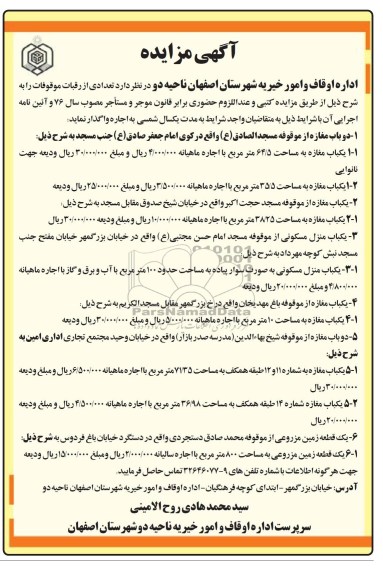 آگهی مزایده
اداره اوقاف و امور خیریه شهرستان اصفهان ناحیه دو در نظر دارد تعدادی از رقبات موقوفات را به
شرح ذیل از طریق مزایده کتبی و عنداللزوم حضوری برابر قانون موجر و مستأجر مصوب سال ۷۶ و آئین نامه
اجرایی آن با شرایط ذیل به متقاضیان واجد شرایط به مدت یکسال شمسی به اجاره واگذار نماید:
۱-دو باب مغازه از موقوفه مسجد الصادق(ع) واقع در کوی امام جعفر صادق(ع) جنب مسجد به شرح ذیل:
۱-۱ یکباب مغازه به مساحت ۶۴/۵ متر مربع با اجاره ماهیانه ۴/۰۰۰/۰۰۰ ریال و مبلغ ۳۰/۰۰۰/۰۰۰ ریال ودیعه جهت
نانوایی
۱-۲یکباب مغازه به مساحت ۳۵/۵ متر مربع با اجاره ماهیانه ۳/۵۰۰/۰۰۰ ریال و مبلغ ۲۵/۰۰۰/۰۰۰ ریال ودیعه
۲-یکباب مغازه از موقوفه مسجد حجت اکبر واقع در خیابان شیخ صدوق مقابل مسجد به شرح ذیل:
۲-۱ یکباب مغازه به مساحت ۳۸/۲۵ متر مربع با اجاره ماهیانه ۱۰/۰۰۰/۰۰۰ ریال و مبلغ ۳۰/۰۰۰/۰۰۰ ریال ودیعه
۳- یکباب منزل مسکونی از موقوفه مسجد امام حسن مجتبی(ع) واقع در خیابان بزرگمهر خیابان مفتح جنب
مسجد نبش کوچه مهرداد به شرح ذیل
۳-۱ یکباب منزل مسکونی به صورت سوار پیاده به مساحت حدود ۱۰۰ متر مربع با آب و برق و گاز با اجاره ماهیانه
۴/۸۰۰/۰۰۰ ریال و مبلغ ۲۰/۰۰۰/۰۰۰ ریال ودیعه
۴-یکباب مغازه از موقوفه باغ مهدیخان واقع در خ بزرگمهر مقابل مسجد الکریم به شرح ذیل:
۴-۱ یکباب مغازه به مساحت ۱۰ متر مربع با اجاره ماهیانه ۵/۰۰۰/۰۰۰ ریال و مبلغ ۳۰/۰۰۰/۰۰۰ ریال ودیعه
۵-دو باب مغازه از موقوفه شیخ بهاءالدین(مدرسه صدر بازار) واقع در خیابان وحید مجتمع تجاری اداری امین به
شرح ذیل:
۵-۱ یکباب مغازه به شماره ۱۱ و ۱۲ طبقه همکف به مساحت ۷۱/۳۵ متر مربع با اجاره ماهیانه ۶/۵۰۰/۰۰۰ ریال و مبلغ ودیعه
۳۰/۰۰۰/۰۰۰ ریال
۵-۲ یکباب مغازه شماره ۱۴ طبقه همکف به مساحت ۳۶/۹۸ متر مربع با اجاره ماهیانه ۴/۵۰۰/۰۰۰ ریال و مبلغ ودیعه
۲۰/۰۰۰/۰۰۰ ریال
۶-یک قطعه زمین مزروعی از موقوفه محمد صادق دستجردی واقع در دستگرد خیابان باغ فردوس به شرح ذیل:
۶-۱ یک قطعه زمین مزروعی به مساحت ۸۰۰ متر مربع با اجاره سالیانه ۲/۰۰۰/۰۰۰ ریال و مبلغ ۱۵/۰۰۰/۰۰۰ ریال ودیعه
جهت هر گونه اطلاعات با شماره تلفن های ۹-۳۲۶۴۶۰۷۷ تماس حاصل فرمایید.
آدرس: خیابان بزرگمهر-ابتدای کوچه فرهنگیان-اداره اوقاف و امور خیریه شهرستان اصفهان ناحیه دو
سید محمد هادی روح الامینی
سرپرست اداره اوقاف و امور خیریه ناحیه دو شهرستان اصفهان
ParsNamadData